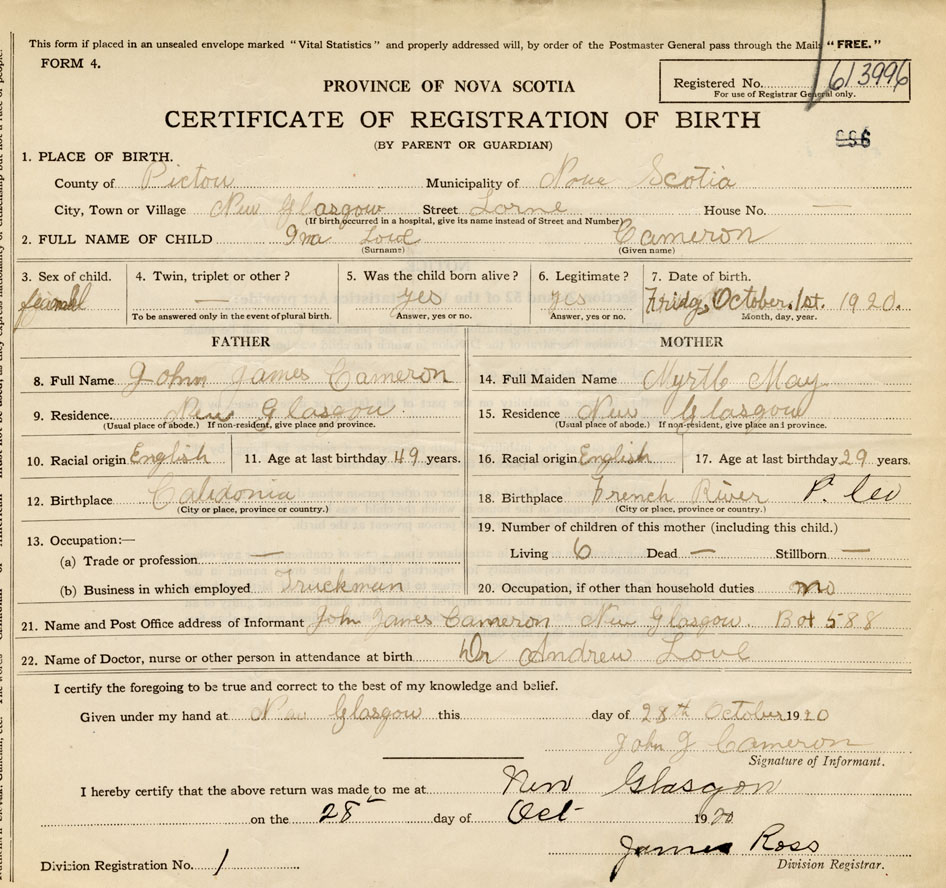 This form if placed in an unsealed envelope marked "Vital Statistics" and properly addressed will, by order of the Postmaster General pass through the Mail "FREE."
FORM 4.
PROVINCE OF NOVA SCOTIA
Registered No. 613996
For use of Registrar General only.
CERTIFICATE OF REGISTRATION OF BIRTH
(BY PARENT OR GUARDIAN)
1. PLACE OF BIRTH.
County of Pictou Municipality of Nova Scotia
City, Town or Village New Glasgow Street Lorne House No. —
(If birth occurred in a hospital, give its name instead of Street and Number)
2. FULL NAME OF CHILD Ima Love Cameron
(Surname) (Given name)
3. Sex of child. 4. Twin, triplet or other? 5. Was the child born alive? 6. Legitimate? 7. Date of birth.
— yes yes Friday, October 1st. 1920.
To be answered only in the event of plural birth. Answer, yes or no. Answer, yes or no. Month, day, year.
FATHER MOTHER
8. Full Name John James Cameron 14. Full Maiden Name Myrtle May
9. Residence. New Glasgow. 15. Residence New Glasgow
(Usual place of abode.) If non-resident, give place and province. (Usual place of abode.) If non-resident, give place and province.
10. Racial origin English 11. Age at last birthday 49 years. 16. Racial origin English 17. Age at last birthday 29 years.
12. Birthplace Caledonia 18. Birthplace French River P. Co
(City or place, province or country.) (City or place, province or country.)
19. Number of children of this mother (including this child.)
13. Occupation:—
(a) Trade or profession — Living 6 Dead — Stillborn —
(b) Business in which employed Truckman 20. Occupation, if other than household duties no
21. Name and Post Office address of Informant John James Cameron New Glasgow. Box 588
22. Name of Doctor, nurse or other person in attendance at birth Dr Andrew Love
I certify the foregoing to be true and correct to the best of my knowledge and belief.
Given under my hand at New Glasgow this day of 28th October 1920
John J Cameron
Signature of Informant.
I hereby certify that the above return was made to me at New Glasgow
on the 28th day of Oct 1920
James Ross
Division Registration No. 1 Division Registrar.